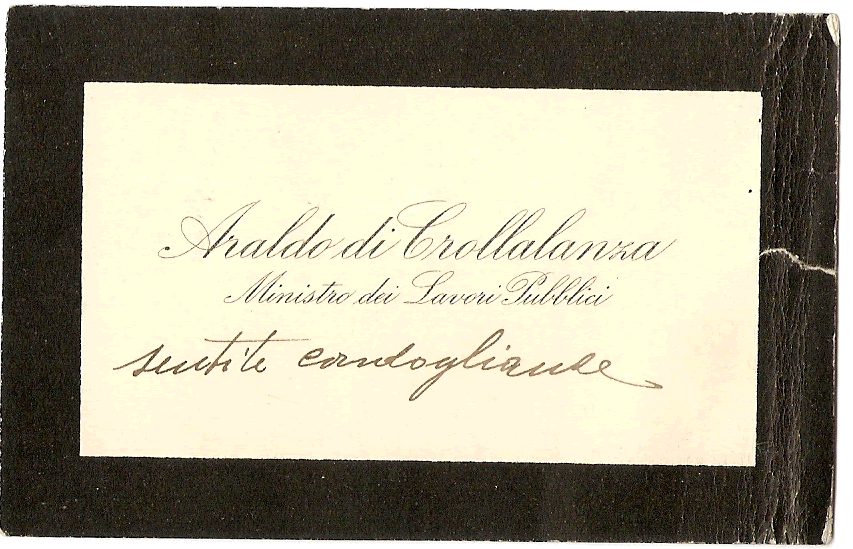 Araldo di Crollalanza
Ministro dei Lavori Pubblici
sentite condoglianze